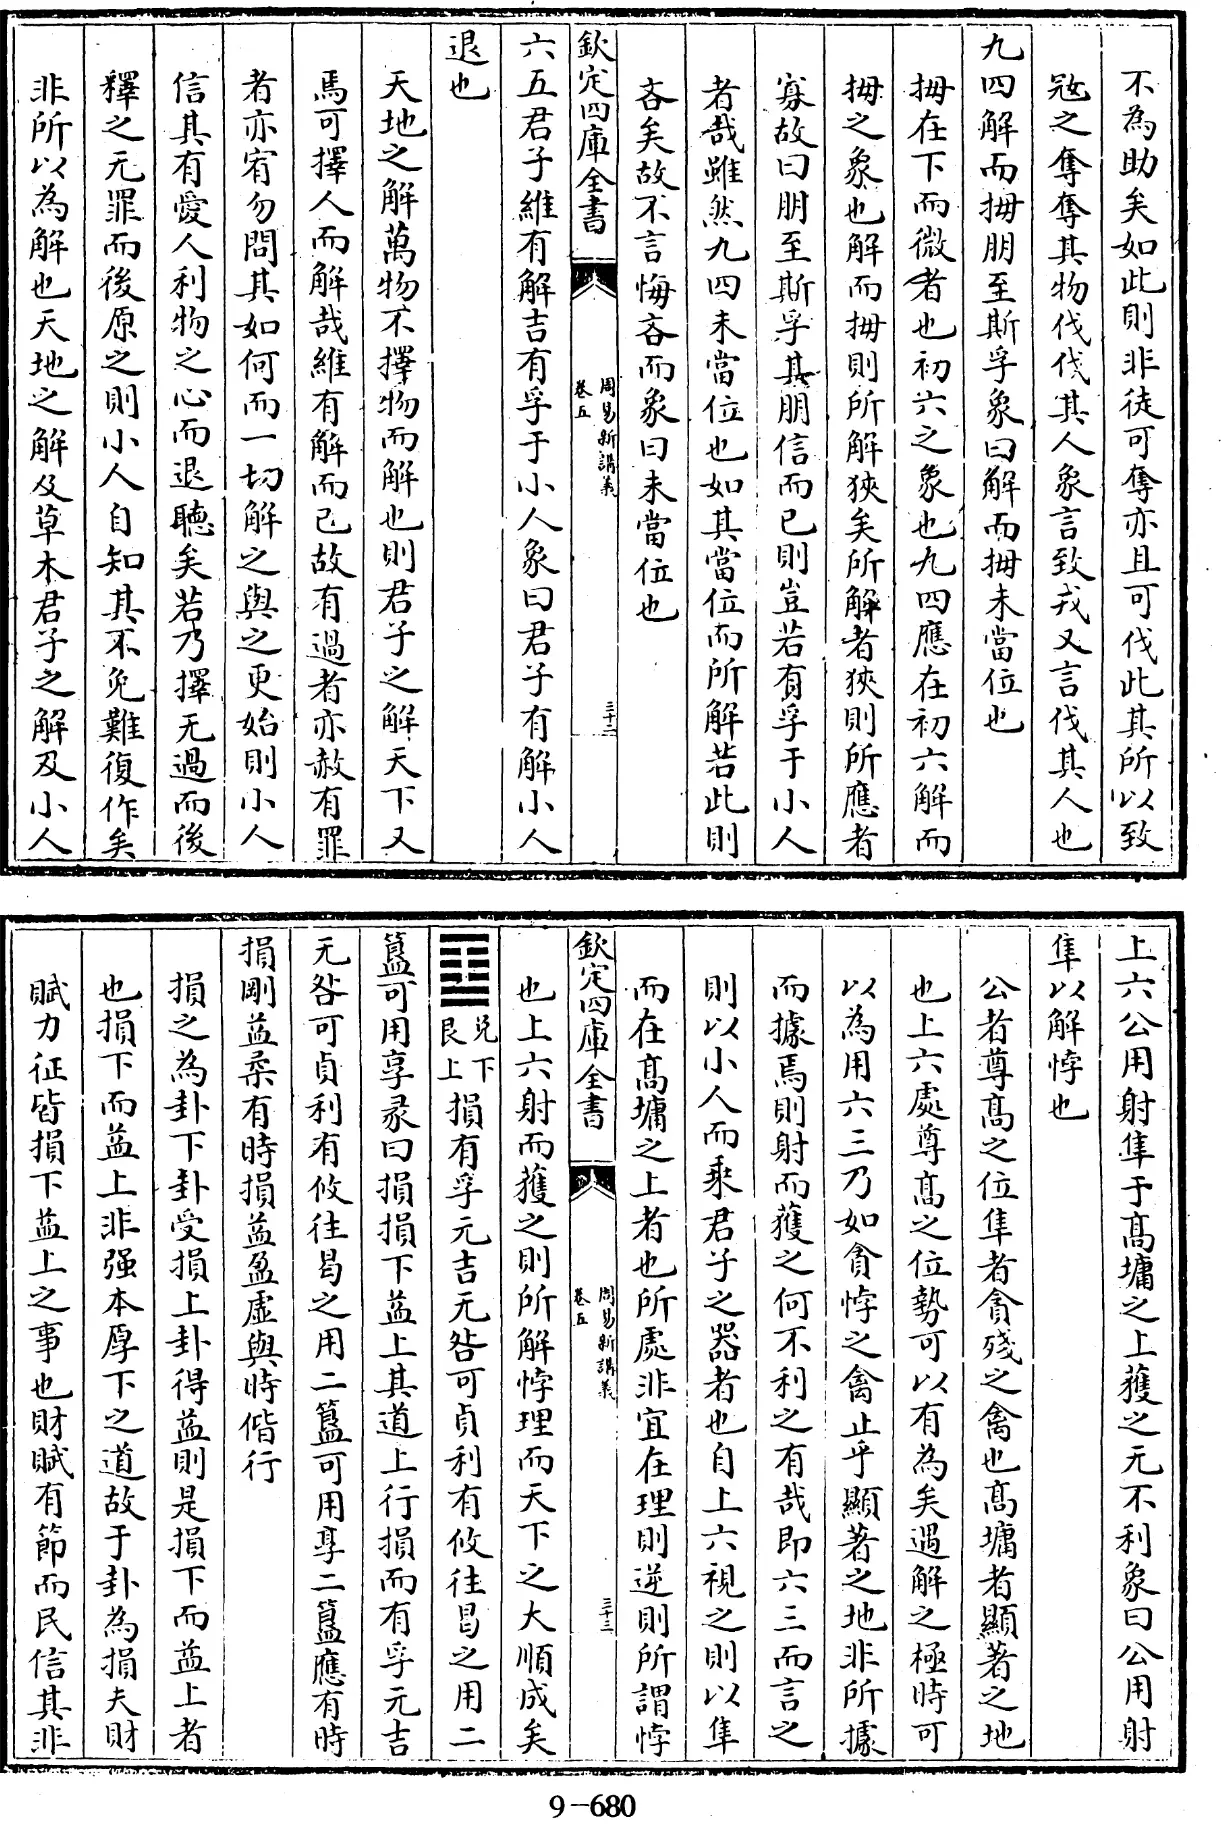 不為助矣如此則非徒可奪亦且可伐此其所以致
冦之奪奪其物伐伐其人象言致戎又言伐其人也
九四解而拇朋至斯孚象曰解而拇未當位也
拇在下而微者也初六之象也九四應在初六解而
拇之象也解而拇則所解狹矣所解者狹則所應者
寡故曰朋至斯孚其朋信而已則豈若有孚于小人
者哉雖然九四未當位也如其當位而所解若此則
吝矣故不言悔吝而象曰未當位也
欽定四庫全書
周易新講義
卷五
三十二
六五君子維有解吉有孚于小人象曰君子有解小人
退也
天地之解萬物不擇物而解也則君子之解天下又
焉可擇人而解哉維有解而已故有過者亦赦有罪
者亦宥勿問其如何而一切解之與之更始則小人
信其有愛人利物之心而退聽矣若乃擇无過而後
釋之无罪而後原之則小人自知其不免難復作矣
非所以為解也天地之解及草木君子之解及小人
上六公用射隼于髙墉之上獲之无不利象曰公用射
隼以解悖也
公者尊髙之位隼者貪殘之禽也髙墉者顯著之地
也上六處尊髙之位勢可以有為矣遇解之極時可
以為用六三乃如貪悖之禽止乎顯著之地非所據
而據焉則射而獲之何不利之有哉即六三而言之
則以小人而乘君子之器者也自上六視之則以隼
而在髙墉之上者也所處非宜在理則逆則所謂悖
欽定四庫全書
周易新講義
卷五
三十三
也上六射而獲之則所解悖理而天下之大順成矣
䷨
兌下
艮上
損有孚元吉无咎可貞利有攸往曷之用二
簋可用享彖曰損損下益上其道上行損而有孚元吉
无咎可貞利有攸往曷之用二簋可用享二簋應有時
損剛益柔有時損益盈虛與時偕行
損之為卦下卦受損上卦得益則是損下而益上者
也損下而益上非强本厚下之道故于卦為損夫財
賦力征皆損下益上之事也財賦有節而民信其非
9-680